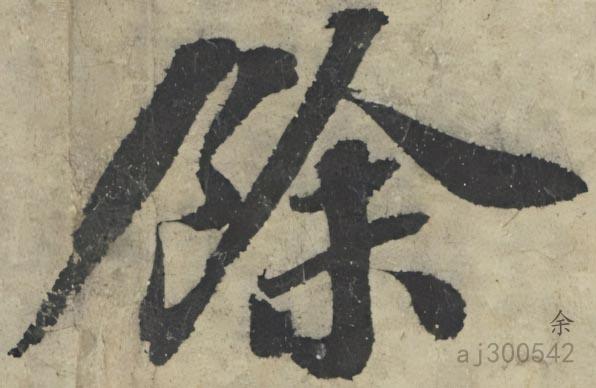 餘
余
aj300542